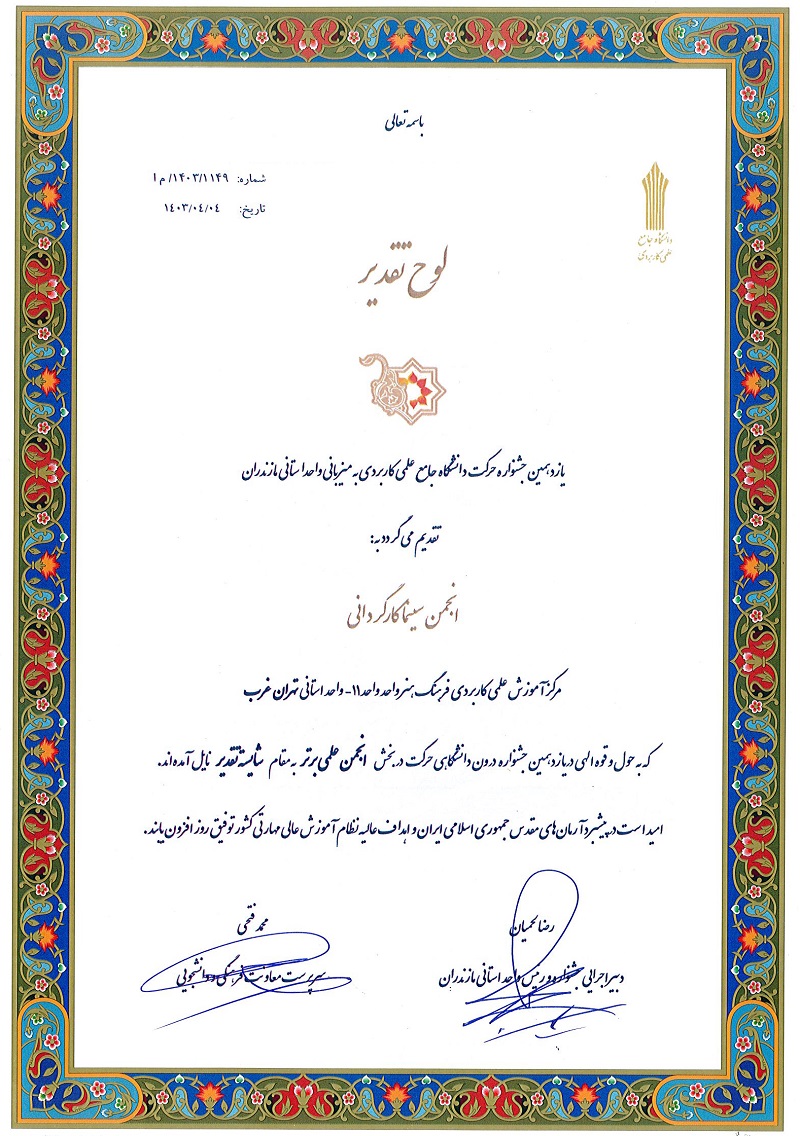 باسمه تعالی
شماره: ۱۴۰۳/۱۱۴۹/ م ا
تاریخ: ۱۴۰۳/۰۴/۰۴
دانشگاه جامع
علمی کاربردی
لوح تقدیر
یازدهمین جشنواره حرکت دانشگاه جامع علمی کاربردی به میزبانی واحد استانی مازندران
تقدیم می گردد به:
انجمن سینما کارگردانی
مرکز آموزش علمی کاربردی فرهنگ هنر واحد واحد ۱۱- واحد استانی تهران غرب
که به حول و قوه الهی در یازدهمین جشنواره درون دانشگاهی حرکت در بخش انجمن علمی برتر به مقام شایسته تقدیر نایل آمده اند.
امید است در پیشبرد آرمان های مقدس جمهوری اسلامی ایران و اهداف عالیه نظام آموزش عالی مهارتی کشور توفیق روز افزون یابند.
رضا لحمیان
دبیر اجرایی جشنواره و رییس واحد استانی مازندران
محمد فتحی
سرپرست معاونت فرهنگی و دانشجویی